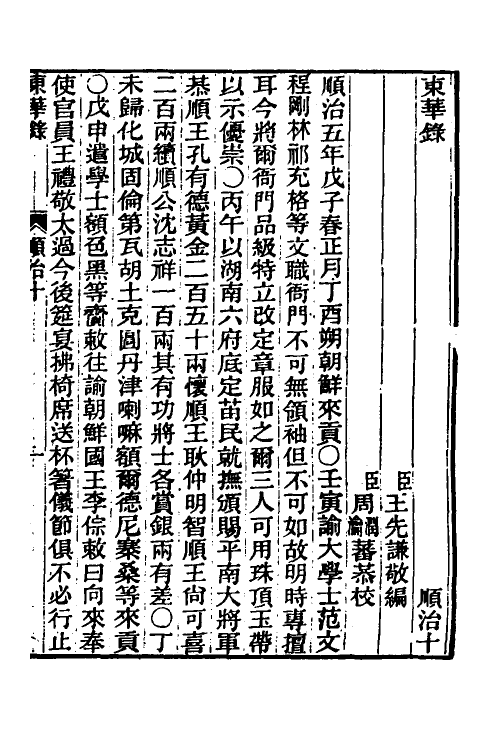 東華錄　順治十
臣王先謙敬編
臣周潤蕃周瀹蕃恭校
順治五年戊子春正月丁酉朔朝鮮來貢〇壬寅諭大學士范文
程剛林祁充格等文職衙門不可無領袖但不可如故明時專擅
耳今將爾衙門品級特立改定章服如之爾三人可用珠頂玉帶
以示優崇〇丙午以湖南六府底定苗民就撫頒賜平南大將軍
恭順王孔有德黃金二百五十兩懷順王耿仲明智順王尙可喜
二百兩續順公沈志祥一百兩其有功將士各賞銀兩有差〇丁
未歸化城固倫第瓦胡土克圖丹津喇嘛額爾德尼寨桑等來貢
〇戊申遣學士額色黑等齎敕往諭朝鮮國王李倧敕曰向來奉
使官員王禮敬太過今後筵宴拂椅席送杯箸儀節俱不必行止
東華錄　順治十　一